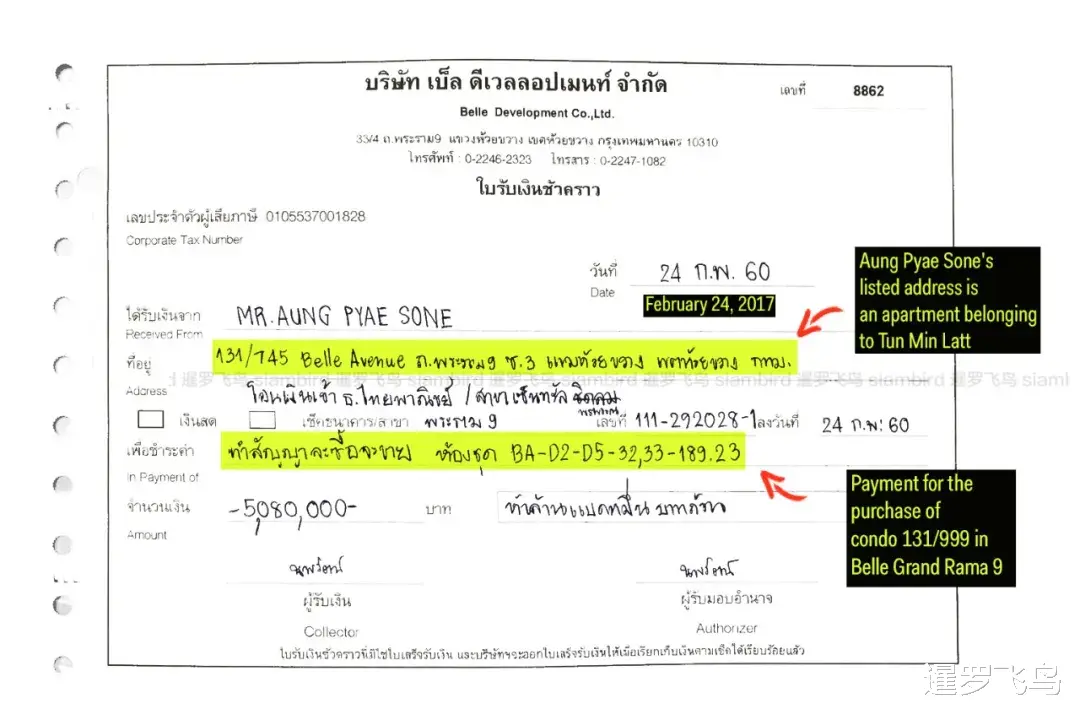 บริษัท เบ็ล ดีเวลลอปเมนท์ จำกัด
เลขที่ 8862
Belle Development Co.,Ltd.
33/4 ถ.พระราม9 แขวงห้วยขวาง เขตห้วยขวาง กรุงเทพมหานคร 10310
โทรศัพท์ : 0-2246-2323 โทรสาร : 0-2247-1082
ใบรับเงินชั่วคราว
เลขประจำตัวผู้เสียภาษี 0105537001828
Corporate Tax Number
วันที่ 24 ก.พ. 60
Date
February 24, 2017
Aung Pyae Sone's
listed address is
an apartment belonging
to Tun Min Latt
ได้รับเงินจาก MR. AUNG PYAE SONE
Received From
ที่อยู่ 131/745 Belle Avenue ถ.พระราม9 ซ.3 แขวงห้วยขวาง เขตห้วยขวาง กทม.
暹罗飞鸟 siambird 暹罗飞鸟 siambird 暹罗飞鸟 siambird 暹罗飞鸟
Address
โอนเงินเข้า ธ.ไทยพาณิชย์ / สาขาเซ็นทรัล
เงินสด เช็คธนาคาร/สาขา พระราม 9 เลขที่ 111-292028-1 ลงวันที่ 24 ก.พ. 60
เพื่อชำระค่า ทำสัญญาจะซื้อจะขาย ห้องชุด BA-D2-D5-32,33-189.23
In Payment of
Payment for the
purchase of
condo 131/999 in
Belle Grand Rama 9
จำนวนเงิน -5,080,000- บาท ห้าล้านแปดหมื่นบาทถ้วน
Amount
ผู้รับเงิน ผู้รับมอบอำนาจ
Collector Authorizer
ใบรับเงินชั่วคราวนี้มิใช่ใบเสร็จรับเงิน และบริษัทฯจะออกใบเสร็จรับเงินให้เมื่อเรียกเก็บเงินตามเช็คได้เรียบร้อยแล้ว
暹罗飞鸟